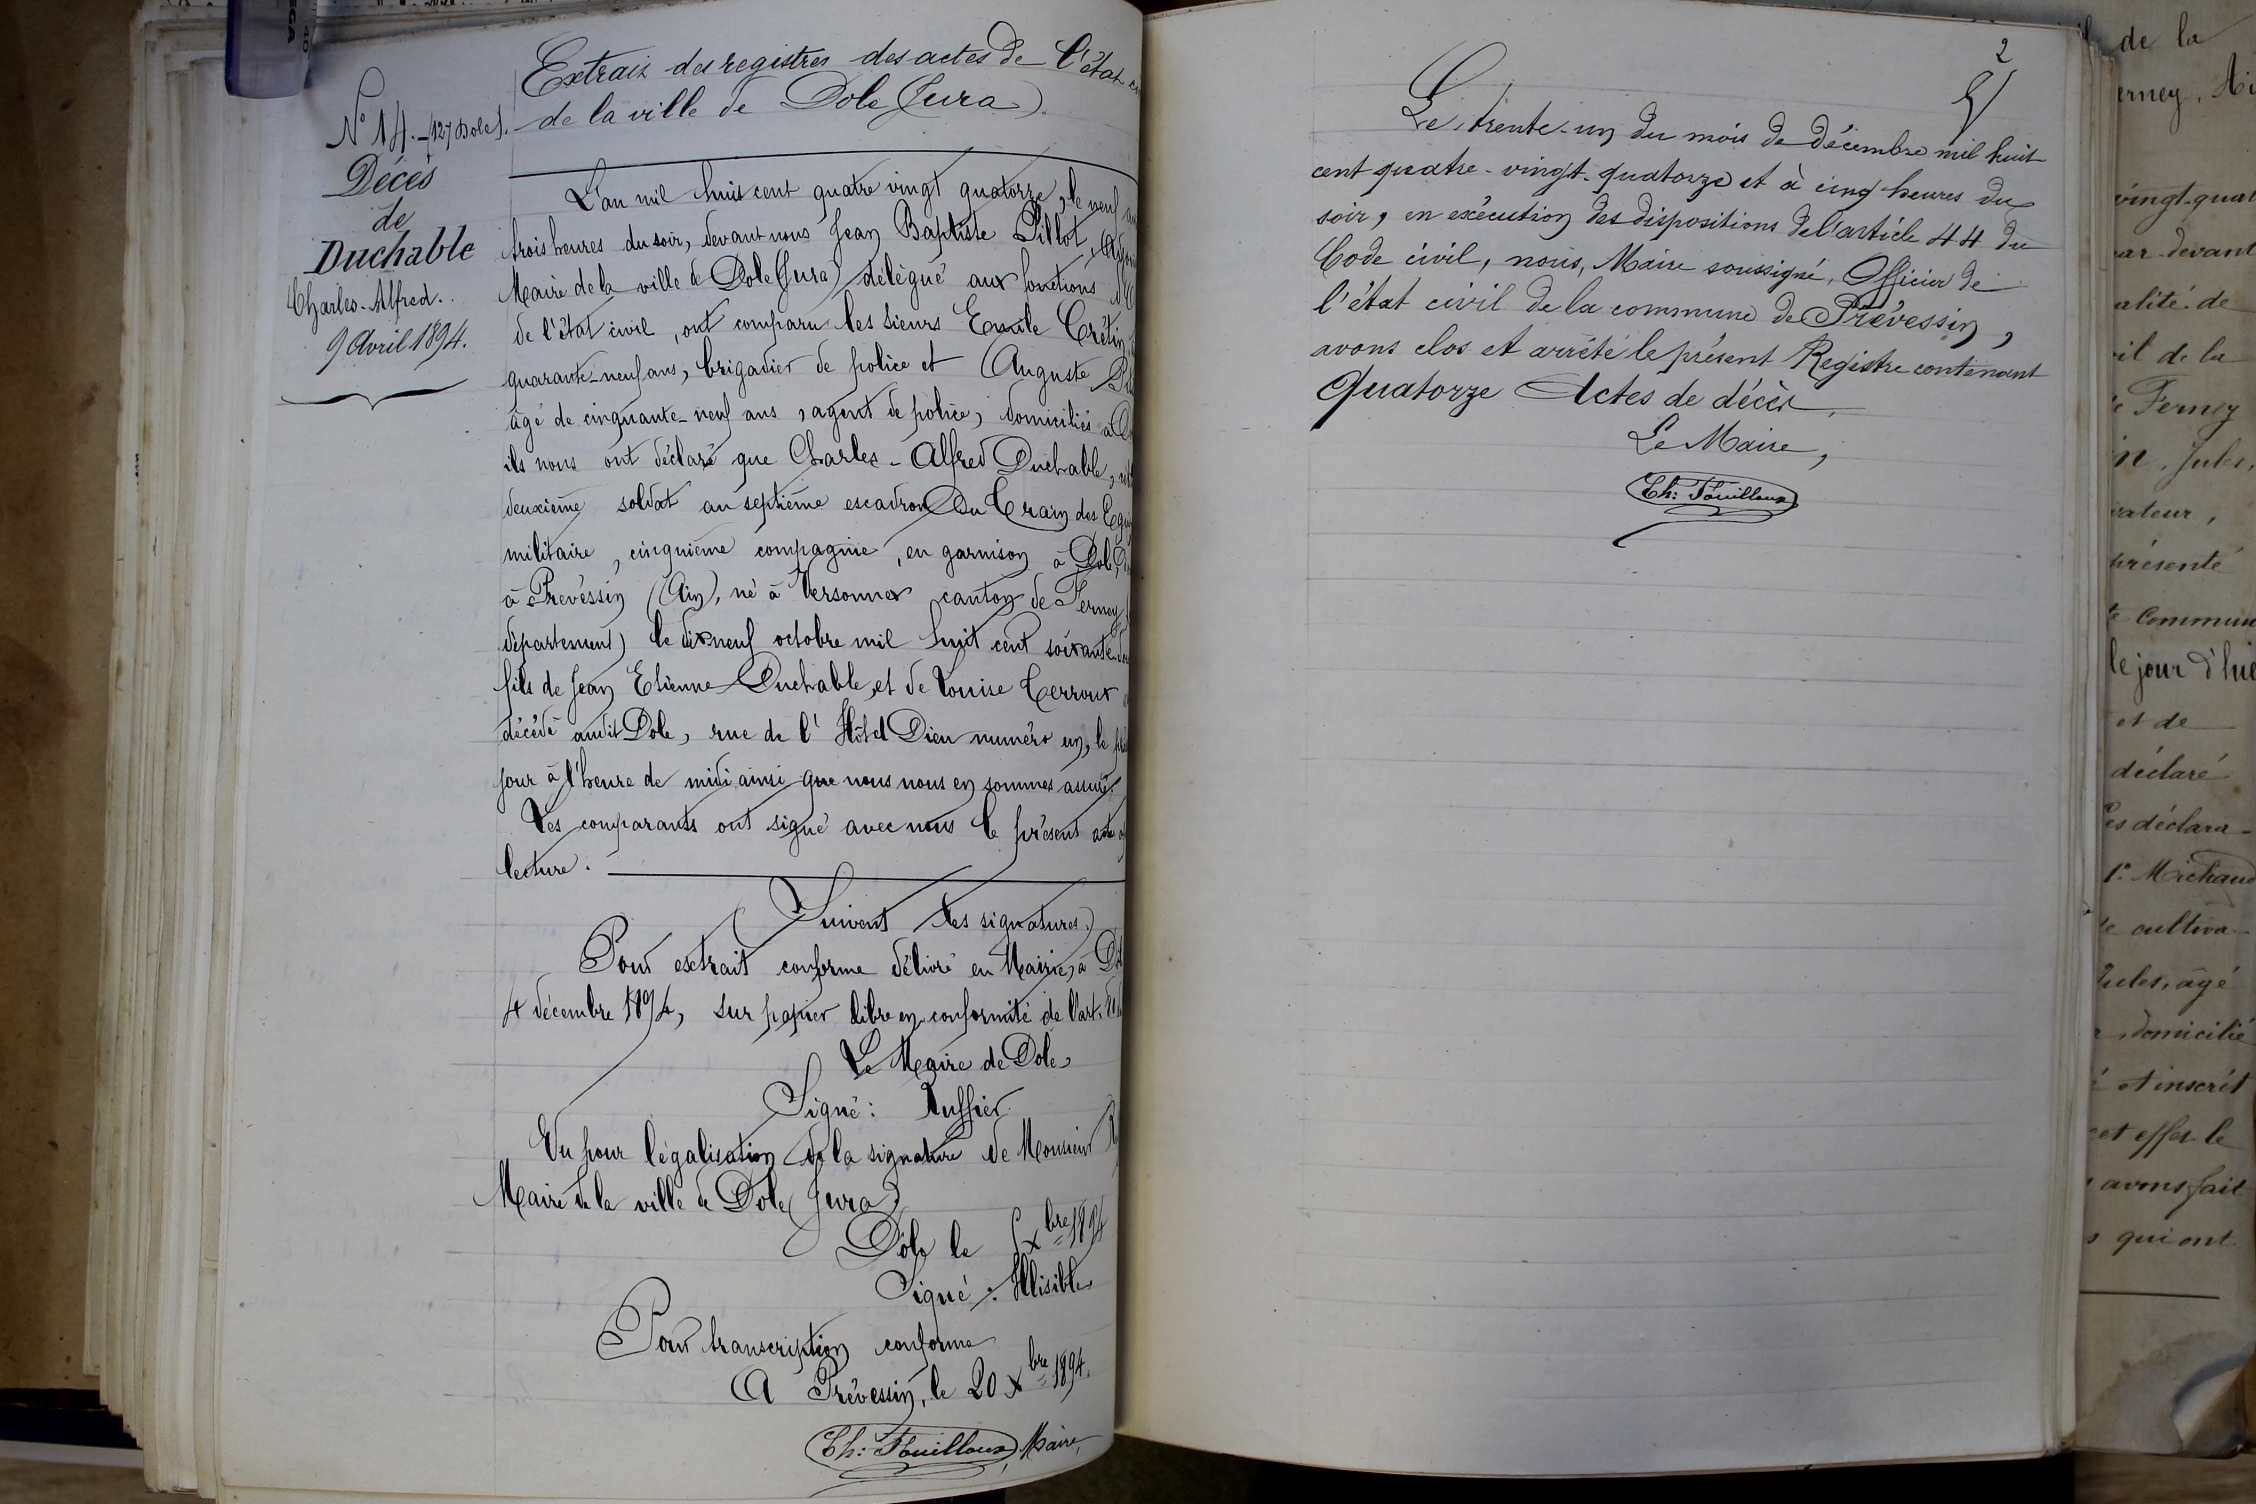 Extrait des registres des actes de l'état
de la ville de Dole (Jura).
N° 14. - (127 Dole).
Décès
de
Duchable
Charles-Alfred.
9 Avril 1894.
L'an mil huit cent quatre vingt quatorze, le neuf
trois heures du soir, devant nous Jean Baptiste Pillot,
Maire de la ville de Dole (Jura) délégué aux fonctions
de l'état civil, ont comparu les sieurs Emile Crétin
quarante-neuf ans, brigadier de police et Auguste
âgé de cinquante-neuf ans, agent de police, domiciliés à
ils nous ont déclaré que Charles-Alfred Duchable,
deuxième soldat au septième escadron du Train des
militaire, cinquième compagnie, en garnison à Dole,
à Prévessin (Ain), né à Versonnex canton de Ferney
département) le dix neuf octobre mil huit cent soixante
fils de Jean Etienne Duchable, et de Louise Terroux
décédé audit Dole, rue de l'Hôtel Dieu numéro un, le
jour à l'heure de midi ainsi que nous nous en sommes assuré.
Les comparants ont signé avec nous le présent acte
lecture.
(Suivent les signatures.)
Pour extrait conforme délivré en Mairie, à
4 décembre 1894, sur papier libre en conformité de l'art.
Le Maire de Dole
Signé: Ruffier.
Vu pour légalisation de la signature de Monsieur
Maire de la ville de Dole (Jura)
Dôle le 5 Xbre 1894
Signé: Illisible
Pour transcription conforme
A Prévessin, le 20 Xbre 1894.
Ch: Fouilloux, Maire,
2
Le trente-un du mois de décembre mil huit
cent quatre-vingt-quatorze et à cinq heures du
soir, en exécution des dispositions de l'article 44 du
Code civil, nous, Maire soussigné, Officier de
l'état civil de la commune de Prévessin,
avons clos et arrêté le présent Registre contenant
Quatorze Actes de décès.
Le Maire,
Ch: Fouilloux
de la
erney, Ai
vingt-quat
ar devant
alité de
il de la
Ferney
n, Jules,
rateur,
présenté
Commun
le jour d'hie
et de
déclaré
es déclara-
Michaud
cultiva-
Jules, âgé
domicilié
et inscrit
et effet le
avons fait
qui ont